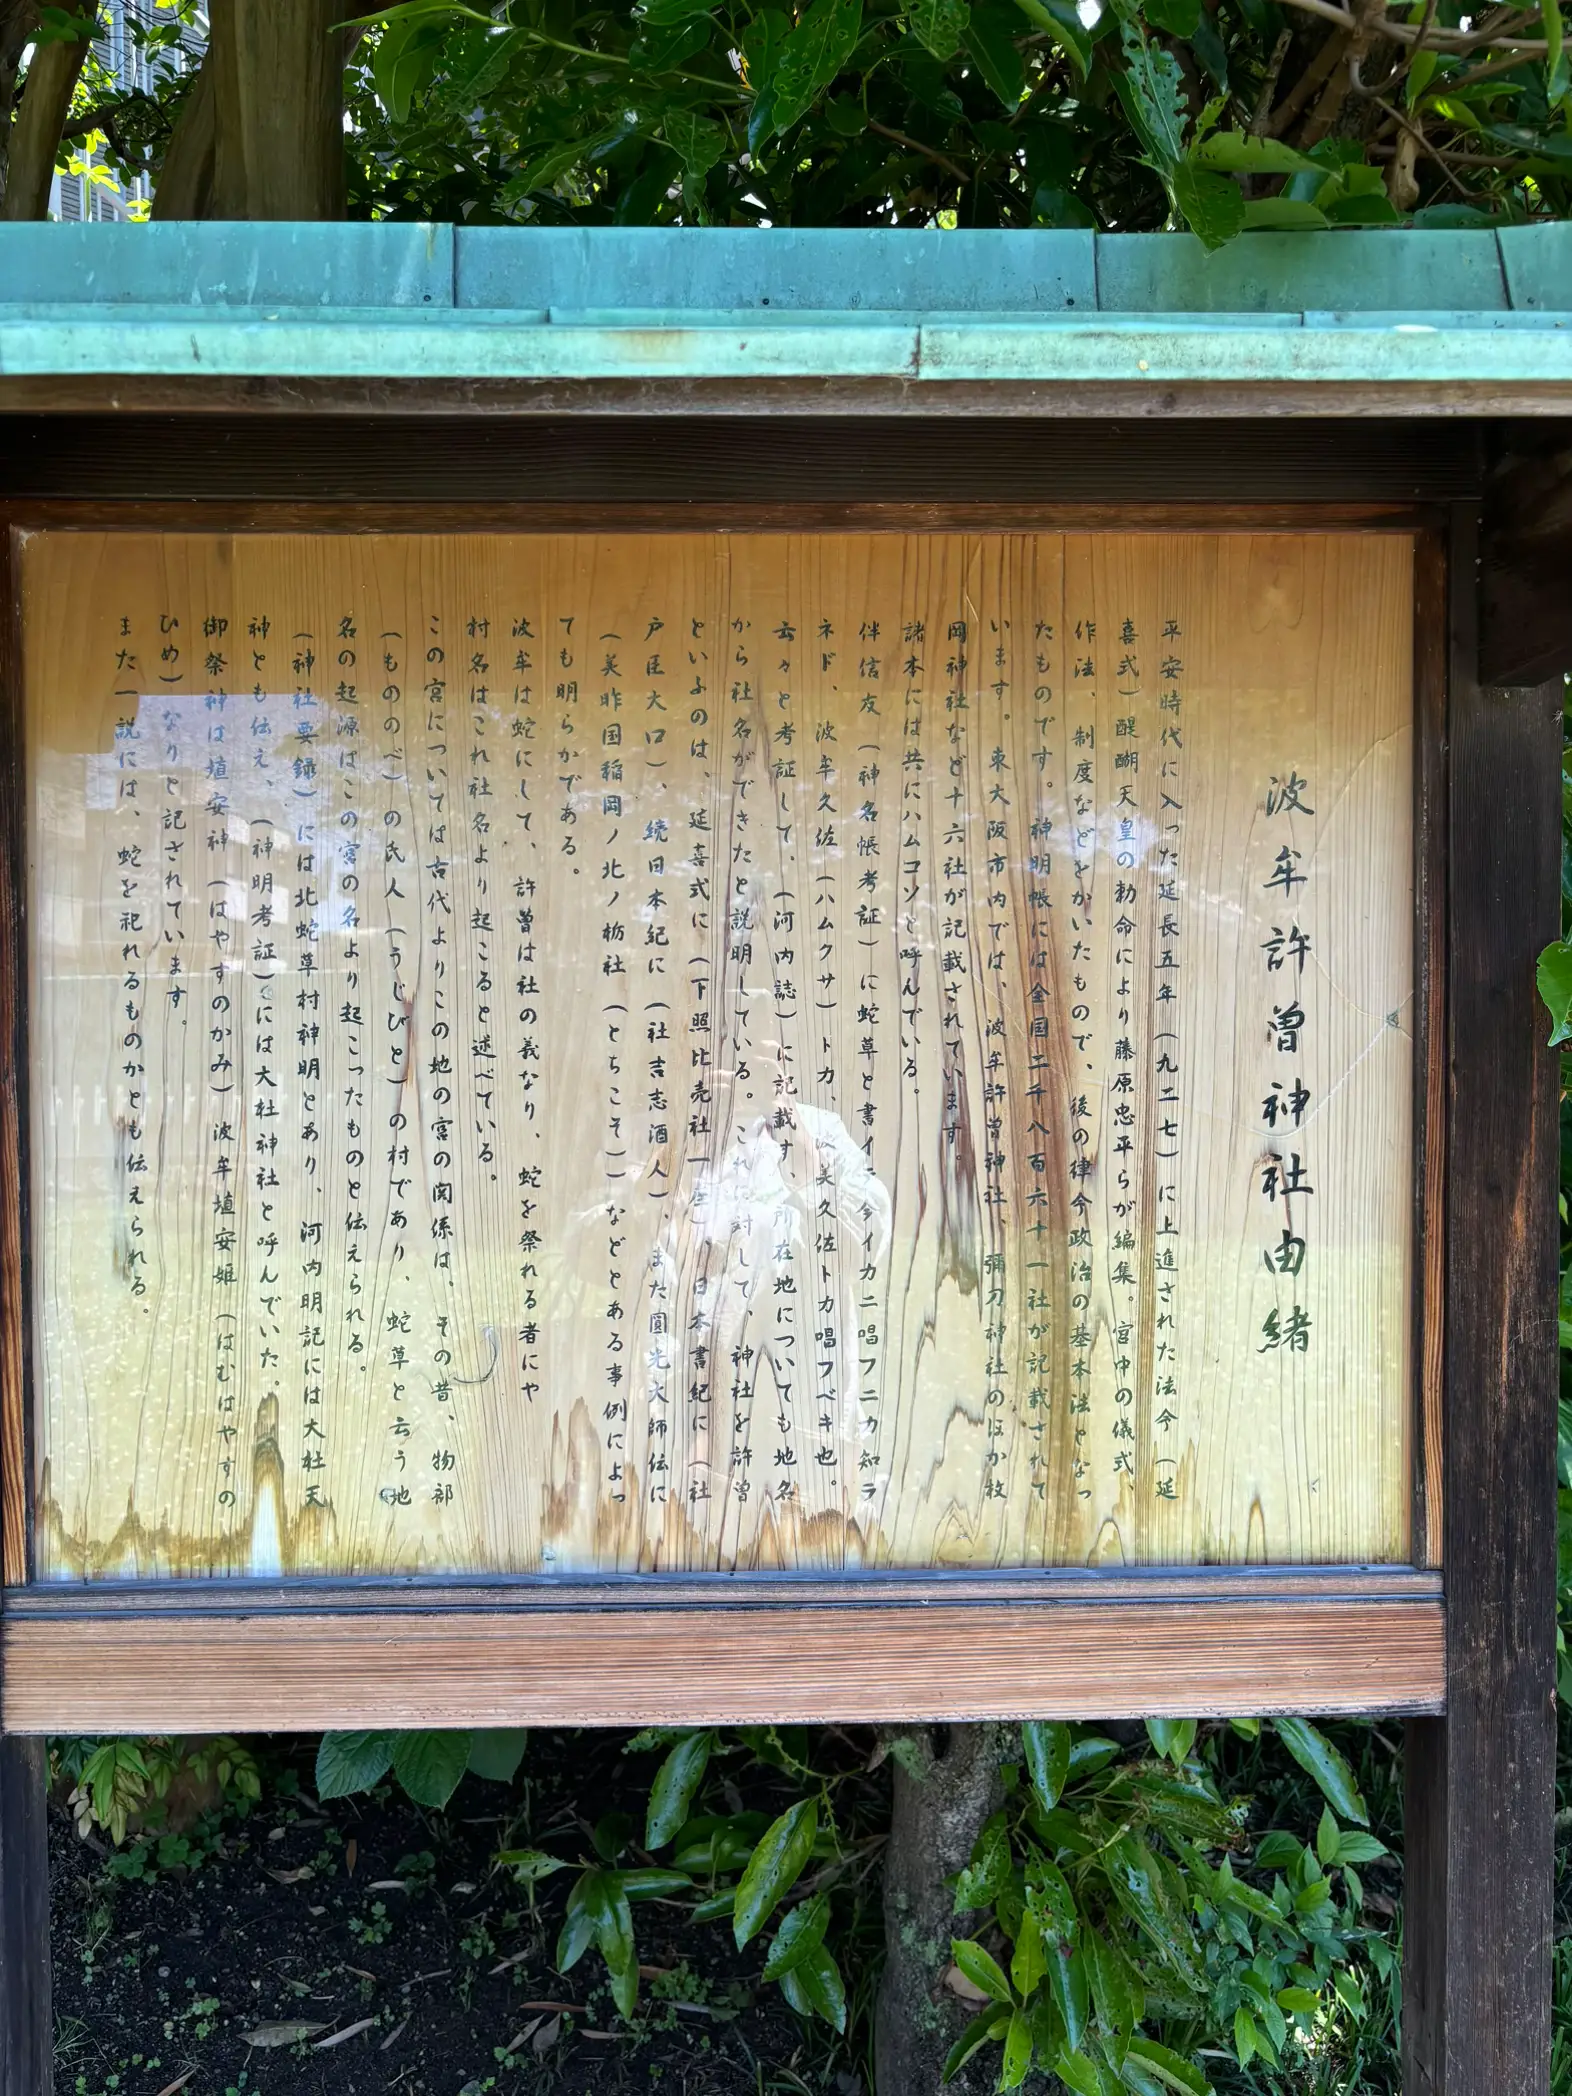 波牟許曽神社由緒
平安時代に入った延長五年（九二七）に上進された法令（延
喜式）醍醐天皇の勅命により藤原忠平らが編集。宮中の儀式、
作法、制度などをかいたもので、後の律令政治の基本法となっ
たものです。神明帳には全国二千八百六十一社が記載されて
います。東大阪市内では、波牟許曽神社、彌刀神社のほか枚
岡神社など十六社が記載されています。
諸本には共にハムコソと呼んでいる。
伴信友（神名帳考証）に蛇草と書イテ今イカニ唱フニカ知ラ
ネド、波牟久佐（ハムクサ）トカ、波美久佐トカ唱フベキ也。
云々と考証して、（河内誌）に記載す、所在地についても地名
から社名ができたと説明している。これに対して、神社を許曽
といふのは、延喜式に（下照比売社一座）、日本書紀に（社
戸臣大口）、続日本紀に（社吉志酒人）、また圓光大師伝に
（美昨国稲岡ノ北ノ栃社（とちこそ））などとある事例によっ
ても明らかである。
波牟は蛇にして、許曽は社の義なり、蛇を祭れる者にや
村名はこれ社名より起こると述べている。
この宮については古代よりこの地の宮の関係は、その昔、物部
（もののべ）の氏人（うじびと）の村であり、蛇草と云う地
名の起源はこの宮の名より起こったものと伝えられる。
（神社要録）には北蛇草村神明とあり、河内明記には大杜天
神とも伝え、（神明考証）には大杜神社と呼んでいた。
御祭神は埴安神（はやすのかみ）波牟埴安姫（はむはやすの
ひめ）なりと記されています。
また一説には、蛇を祀れるものかとも伝えられる。